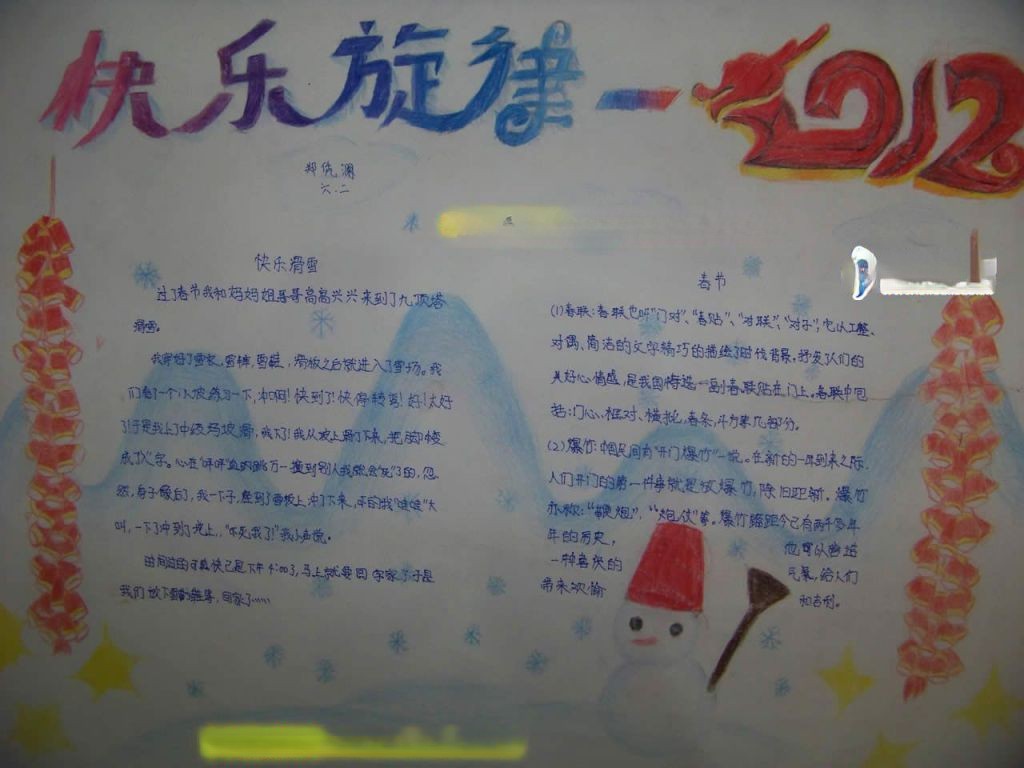 快乐旋律—2012
郑
六.二
快乐滑雪
过了春节我和妈妈姐姐哥哥高高兴兴来到了九顶塔
滑雪。
我穿好了雪衣,雪裤,雪鞋,滑板之后就进入了雪场。我
们看了一个小坡练习一下,冲啊!快到了!快停转弯!好!太好
了!于是我上了中级坡滑,我下!我从坡上滑了下来,把脚
成"八"字。心在"怦怦"直跳万一撞到别人我就会死了的,忽
然,身子像后,我一下子,坐到了雪板上冲了下来,
叫,一下冲到了地上,"吓死我了!"我小声说。
时间过的可真快已是下午4:00了,马上就要回家了于是
我们放下雪具,回家了……
春节
(1)春联:春联也叫"门对"、"春贴"、"对联"、"对子",它以工整、
对偶、简洁的文字精巧的描绘了时代背景,抒发人们的
美好心情感,是我国每选一副春联贴在门上。春联中包
括:门心、框对、横批、春条、斗方等几部分。
(2)爆竹:中国民间有"开门爆竹"一说。在新的一年到来之际,
人们开门的第一件事就是放爆竹,除旧迎新。爆竹
亦称:"鞭炮","炮仗"等。爆竹距今已有两千多年
年的历史,他可以营造
一种喜庆的气氛,给人们
带来欢愉和吉利。